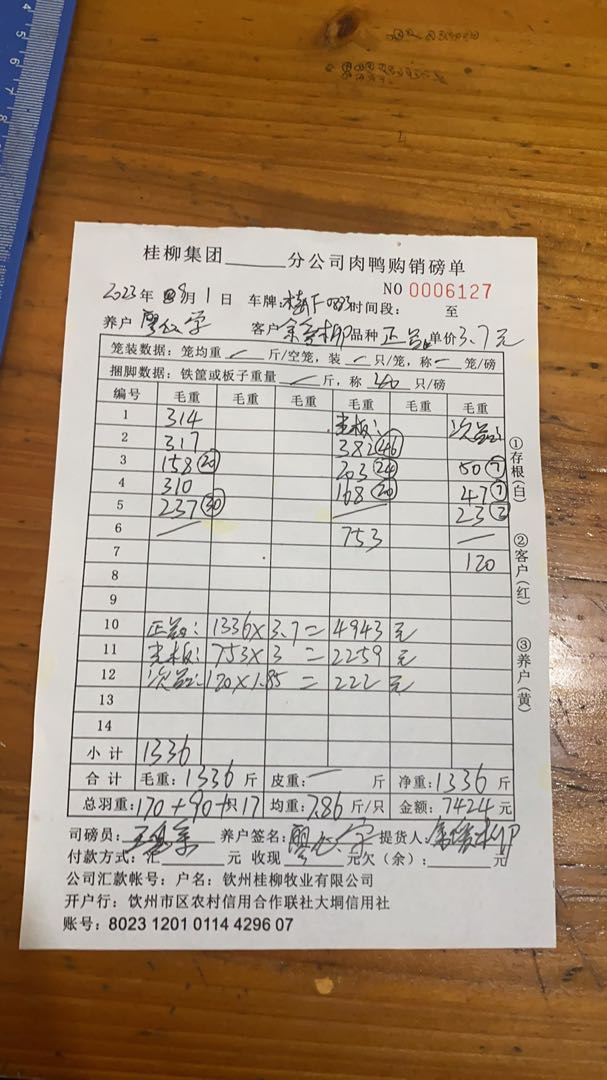 桂柳集团______分公司肉鸭购销磅单
NO 0006127
2023年 8月1日 车牌: 时间段: 至
养户 客户 品种 正品 单价3.7元
笼装数据: 笼均重 / 斤/空笼, 装 / 只/笼, 称 / 笼/磅
捆脚数据: 铁筐或板子重量 / 斤, 称 240 只/磅
编号 毛重 毛重 毛重 毛重 毛重 毛重
1 314 毛板: 次品:
2 317 382 46
3 158 20 203 24 50 7
4 310 168 20 47 7
5 237 30 / 23 3
6 / 753 /
7 120
8
9
10 正品: 1336×3.7=4943元
11 毛板: 753×3=2259元
12 次品: 120×1.85=222元
13
14
小计 1336
合计 毛重: 1336斤 皮重: / 斤 净重: 1336斤
总羽重: 170+90+只17 均重: 7.86斤/只 金额: 7424元
司磅员: 养户签名: 提货人:
付款方式: 汇______元 收现______元欠(余):______元
公司汇款帐号: 户名: 钦州桂柳牧业有限公司
开户行: 钦州市区农村信用合作联社大垌信用社
账号: 8023 1201 0114 4296 07
①存根(白)
②客户(红)
③养户(黄)
4 5 6 7 8